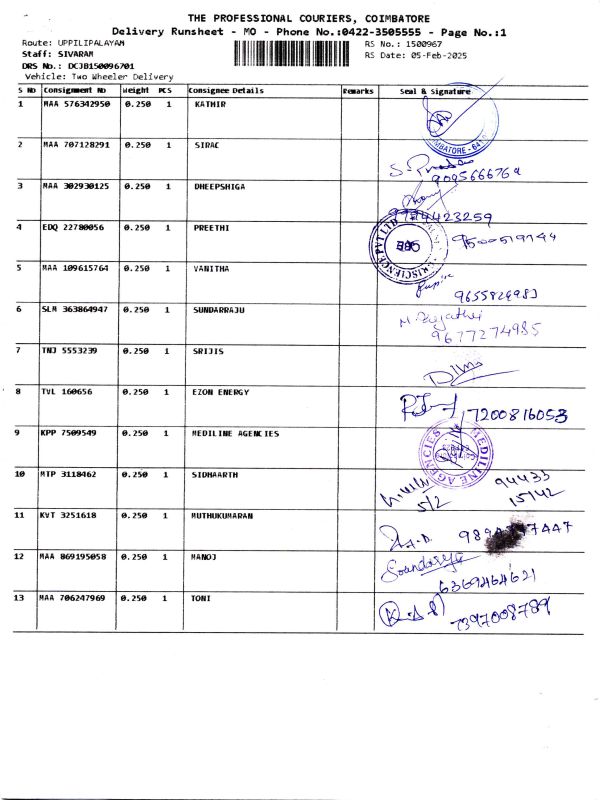 THE PROFESSIONAL COURIERS, COIMBATORE
Delivery Runsheet - MO - Phone No.:0422-3505555 - Page No.:1
Route: UPPILIPALAYAM RS No.: 1500967
Staff: SIVARAM RS Date: 05-Feb-2025
DRS No.: DCJB150096701
Vehicle: Two Wheeler Delivery
S No Consignment No Weight PCS Consignee Details Remarks Seal & Signature
1 MAA 576342950 0.250 1 KATHIR
2 MAA 707128291 0.250 1 SIRAC
9095666769
3 MAA 302930125 0.250 1 DHEEPSHIGA
9994423259
4 EDQ 22780056 0.250 1 PREETHI
9500519144
5 MAA 109615764 0.250 1 VANITHA
9655829983
6 SLM 363864947 0.250 1 SUNDARRAJU
9677274985
7 TNJ 5553239 0.250 1 SRIJIS
8 TVL 160656 0.250 1 EZON ENERGY
7200816053
9 KPP 7509549 0.250 1 MEDILINE AGENCIES
MEDILINE AGENCIES
10 MTP 3118462 0.250 1 SIDHAARTH
94433
5/2 15142
11 KVT 3251618 0.250 1 MUTHUKUMARAN
12 MAA 869195058 0.250 1 MANOJ
Soundarya
6369464621
13 MAA 706247969 0.250 1 TONI
7397008789